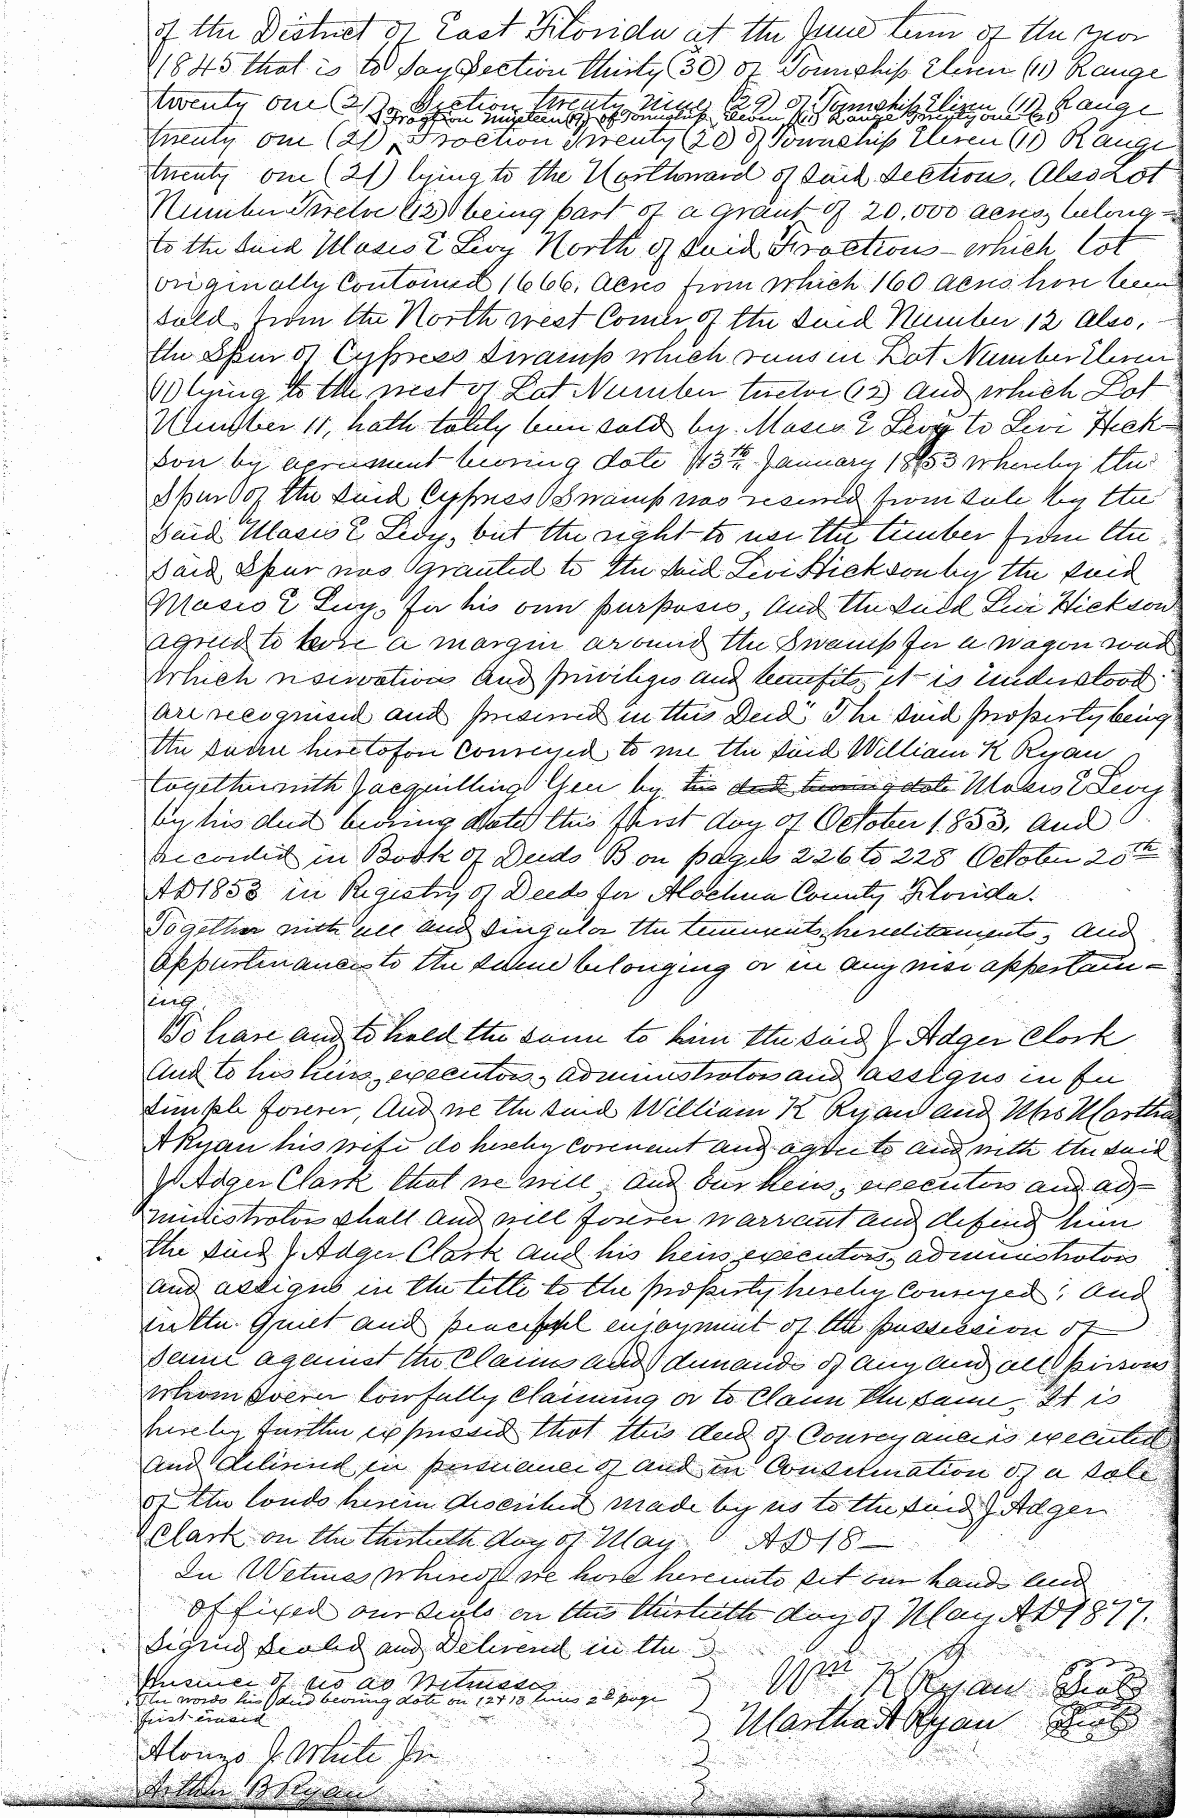 of the District of East Florida at the June term of the year
1845 that is to say Section thirty (30) of Township Eleven (11) Range
twenty one (21), Section twenty nine (29) of Township Eleven (11) Range
Fraction nineteen (19) of Township Eleven (11) Range Twenty one (21)
twenty one (21) ^ Fraction Twenty (20) of Township Eleven (11) Range
twenty one (21) lying to the Northward of said sections. Also Lot
Number Twelve (12) being part of a grant of 20.000 acres, belong=
to the said Moses E Levy North of said Fractions - which lot
originally contained 1666. acres from which 160 acres have been
sold from the North west Corner of the said Number 12 Also,
the Spur of Cypress Swamp which runs in Lot Number Eleven
(11) lying to the west of Lot Number twelve (12) and which Lot
Number 11, hath totaly been sold by Moses E Levy to Levi Hick-
son by agreement bearing date 13th January 1853 whereby the
Spur of the said Cypress Swamp was reserved from sale by the
said Moses E Levy, but the right to use the timber from the
said Spur was granted to the said Levi Hickson by the said
Moses E Levy, for his own purposes, and the said Levi Hickson
agreed to leave a margin around the Swamp for a wagon road
which reservations and privileges and benefits, it is understood
are recognised and preserved in this Deed." The said property being
the same heretofore conveyed to me the said William K Ryan
together with Jacquilling Gee by his deed bearing date Moses E Levy
by his deed bearing date this first day of October 1853. and
recorded in Book of Deeds B on pages 226 to 228 October 20th
AD 1853 in Registry of Deeds for Alachua County Florida.
Together with all and singular the tenements, hereditaments, and
appurtenances to the same belonging or in any wise appertain=
ing
To have and to hold the same to him the said J Adger Clark
And to his heirs, executors, administrators and assigns in fee
simple forever, And we the said William K Ryan and Mrs Martha
A Ryan his wife do hereby covenant and agree to and with the said
J Adger Clark that we will and our heirs, executors and ad=
ministrators shall and will forever warrant and defend him
the said J Adger Clark and his heirs, executors, administrators
and assigns in the title to the property hereby conveyed; and
in the quiet and peaceful enjoyment of the possession of
same against the Claims and demands of any and all persons
whomsoever lawfully claiming or to Claim the same, It is
hereby further expressed that this deed of Conveyance is executed
and delivered in persuance of and in Consumation of a sale
of the lands herein described made by us to the said J Adger
Clark on the thirtieth day of May AD 18—
In Wetness whereof we have hereunto set our hands and
affixed our seals on this thirtieth day of May AD 1877.
Signed Sealed and Delivered in the
presence of us as Witnesses
The words his deed bearing date on 12 & 13 lines 2d page
first erased
Wm K Ryan Seal
Martha A Ryan Seal
Alonzo J. White Jr
Arthur B Ryan